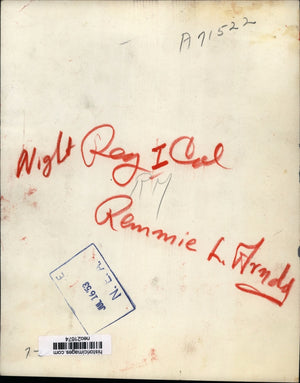 A71522
Night Ray I Col
RM
Remmie L. Arnold
N.E.A.
JUL 16 53
historicimages.com
neo21674
7-